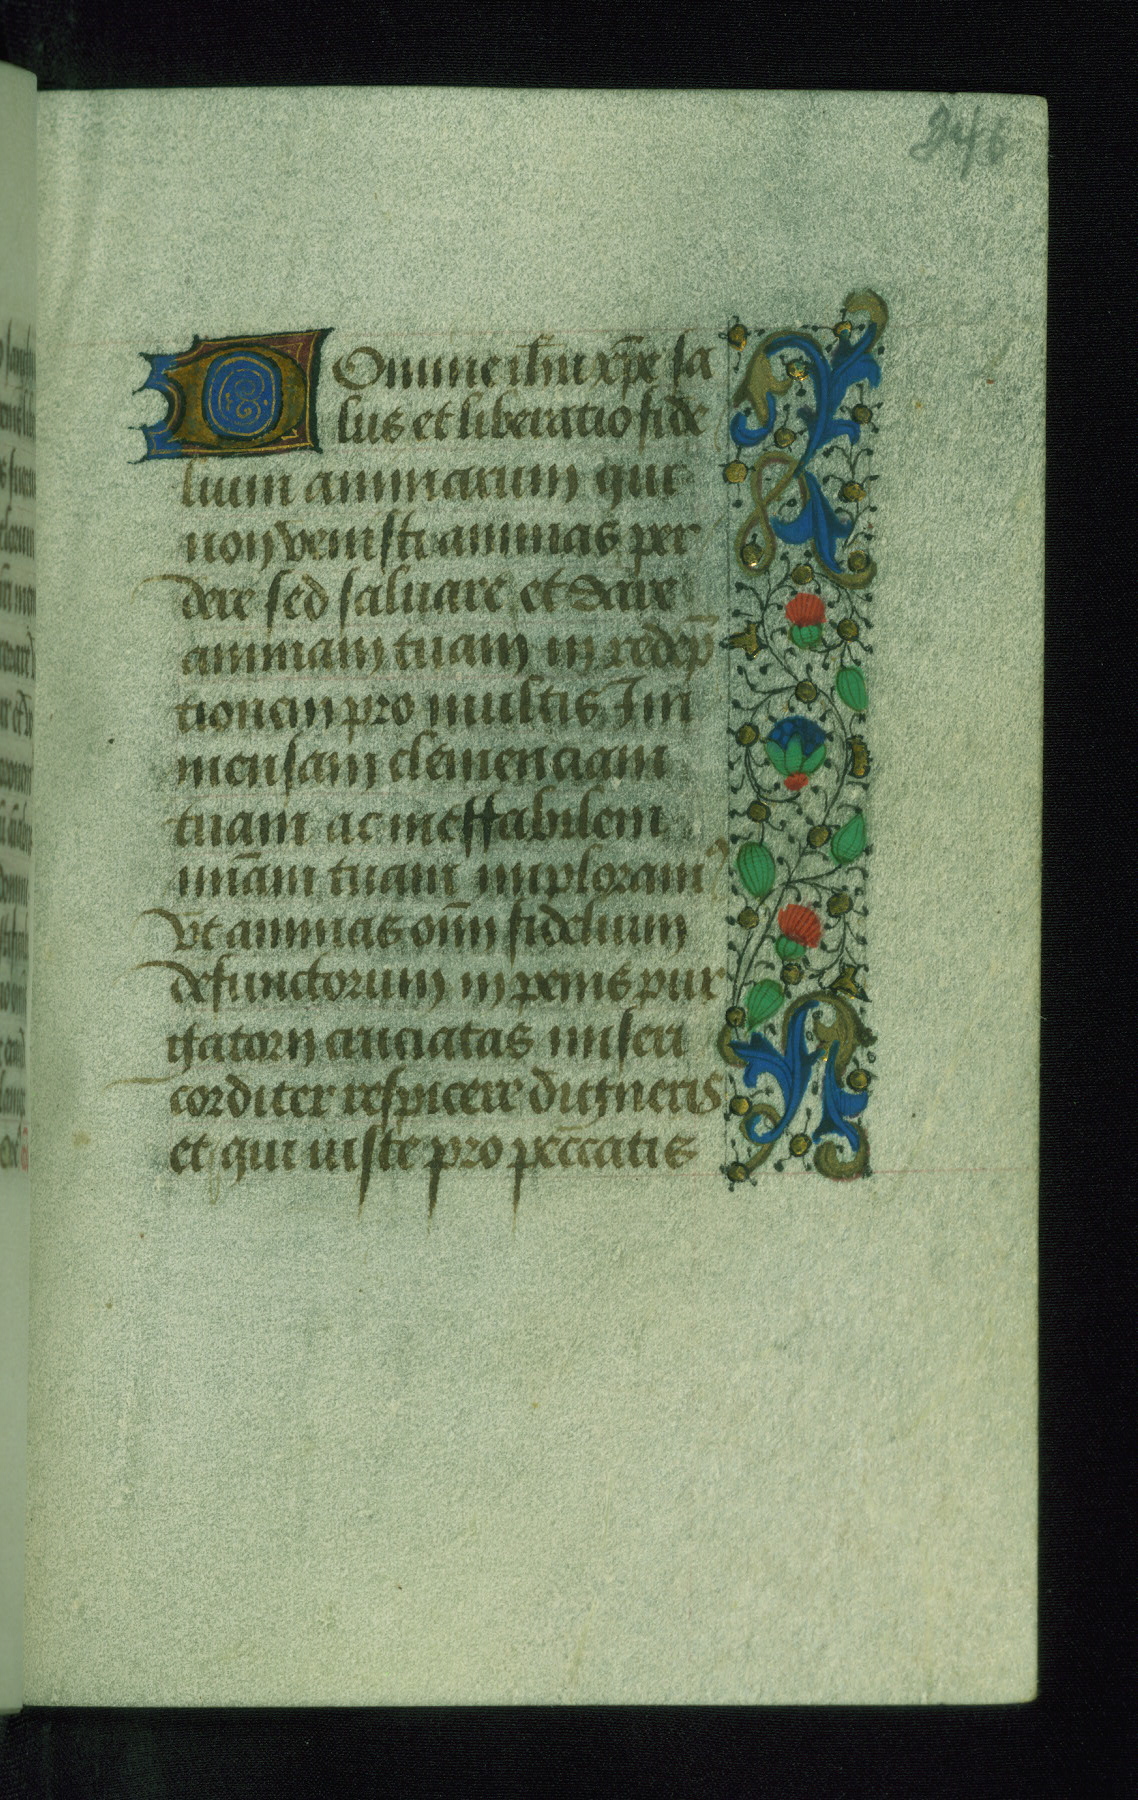 246
Domine ih̄u xp̄e sa
lus et liberatio fide
lium animarum qui
non venisti animas per
dere sed saluare et dare
animam tuam in redēp
tionem pro multis Im
mensam clemenciam
tuam ac ineffabilem
mīam tuam imploramꝰ
vt animas om̄ fidelium
defunctorum in penis pur
gatorij cruciatas miseri
corditer respicere digneris
et qui iuste pro pec̄catis